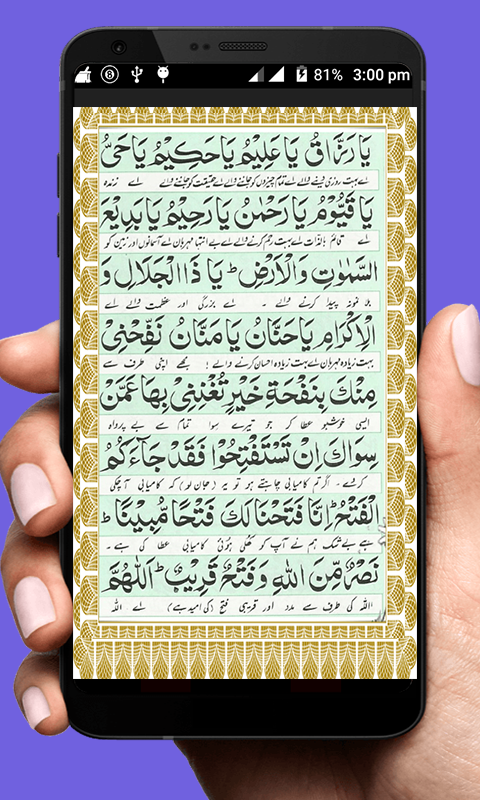 81% 3:00 pm
يَا رَزَّاقُ يَا عَلِيْمُ يَا حَكِيْمُ يَا حَيُّ
اے بہت روزی دینے والے اے تمام چیزوں کو جاننے والے اے حقیقت کو جاننے والے اے زندہ
يَا قَيُّوْمُ يَا رَحْمٰنُ يَا رَحِيْمُ يَا بَدِيْعَ
اے قائم بالذات اے بہت رحم کرنے والے اے بے انتہا مہربان اے آسمانوں اور زمین کو
السَّمٰوٰتِ وَالْاَرْضِ ؕ يَا ذَا الْجَلَالِ وَ
بلا نمونہ پیدا کرنے والے ۔ اے بزرگی اور عظمت والے اے
الْاِكْرَامِ يَا حَنَّانُ يَا مَنَّانُ نَفِّحْنِيْ
بہت زیادہ مہربان اے بہت زیادہ احسان کرنے والے ! مجھے اپنی طرف سے
مِنْكَ بِنَفْحَةِ خَيْرٍ تُغْنِنِيْ بِهَا عَمَّنْ
ایسی خوشبو عطا کر جو تیرے سوا تمام سے بے پرواہ
سِوَاكَ اِنْ تَسْتَفْتِحُوْا فَقَدْ جَآءَكُمُ
کردے ۔ اگر تم کامیابی چاہتے ہو تو یہ (جان لو) کہ کامیابی آچکی
الْفَتْحُ ؕ اِنَّا فَتَحْنَا لَكَ فَتْحًا مُّبِيْنًا ؕ
ہے بے شک ہم نے آپ کو کھلی ہوئی کامیابی عطا کی ہے ۔
نَصْرٌ مِّنَ اللهِ وَفَتْحٌ قَرِيْبٌ ؕ اَللّٰهُمَّ
اللہ کی طرف سے مدد اور قریبی فتح (کی امید ہے) اے اللہ